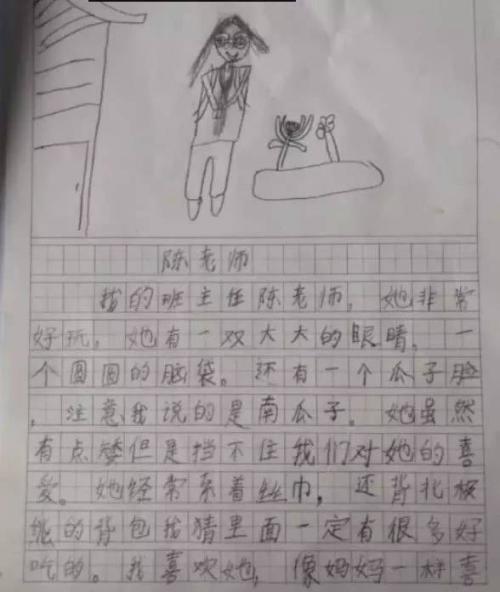 陈老师
我的班主任陈老师。她非常
好玩。她有一双大大的眼睛,一
个圆圆的脑袋。还有一个瓜子脸
,注意我说的是南瓜子。她虽然
有点矮但是挡不住我们对她的喜
爱。她经常系着丝巾,还背北极
熊的背包我猜里面一定有很多好
吃的。我喜欢她,像妈妈一样喜